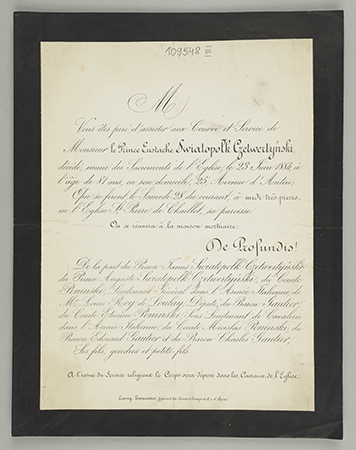 109548 III
M
Vous êtes prié d'assister aux Convoi et Service de
Monsieur le Prince Eustache Swiatopolk Czetwertyński,
décédé, muni des Sacrements de l'Eglise, le 25 Juin 1884, à
l'âge de 81 ans, en son domicile, 25, Avenue d'Antin;
Qui se feront le Samedi 28 du courant, à midi très-précis,
en l'Eglise St Pierre de Chaillot, sa paroisse.
On se réunira à la maison mortuaire.
De Profundis!
De la part du Prince Janus Swiatopolk Czetwertyński
du Prince Auguste Swiatopolk Czetwertyński, du Comte
Poninski, Lieutenant Général dans l'Armée Italienne, de
Mr Louis Roy de Loulay, Député, du Baron Gautier,
du Comte Etienne Poninski, Sous Lieutenant de Cavalerie
dans l'Armée Italienne, du Comte Poninski, du
Baron Edouard Gautier et du Baron Charles Gautier,
Ses fils, gendres et petits-fils.
A l'issue du Service religieux le Corps sera déposé dans les Caveaux de l'Eglise.